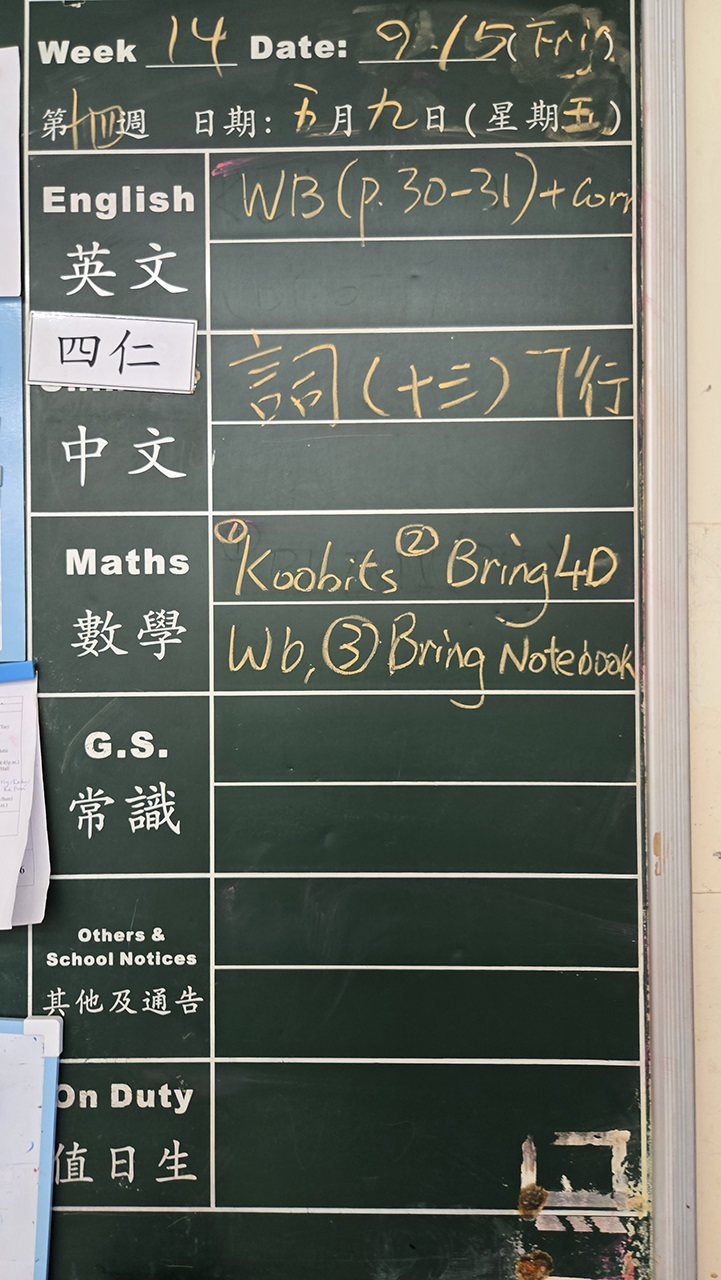 Week 14 Date: 9.15(Fri)
第十四週 日期:五月九日(星期五)
English WB(p.30-31)+Corr
英文
四仁
詞(十三)7行
中文
Maths ①Koobits ②Bring 4D
數學 Wb, ③Bring Notebook
G.S.
常識
Others &
School Notices
其他及通告
On Duty
值日生